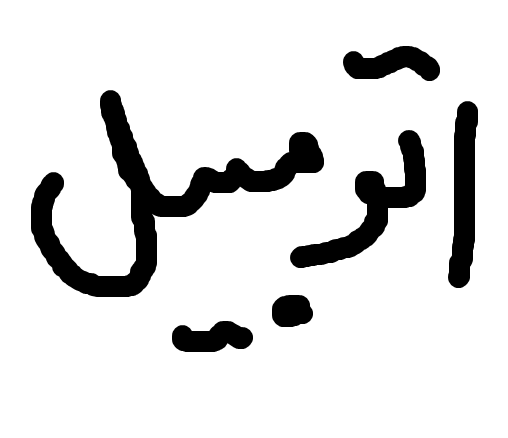 اتومبیل